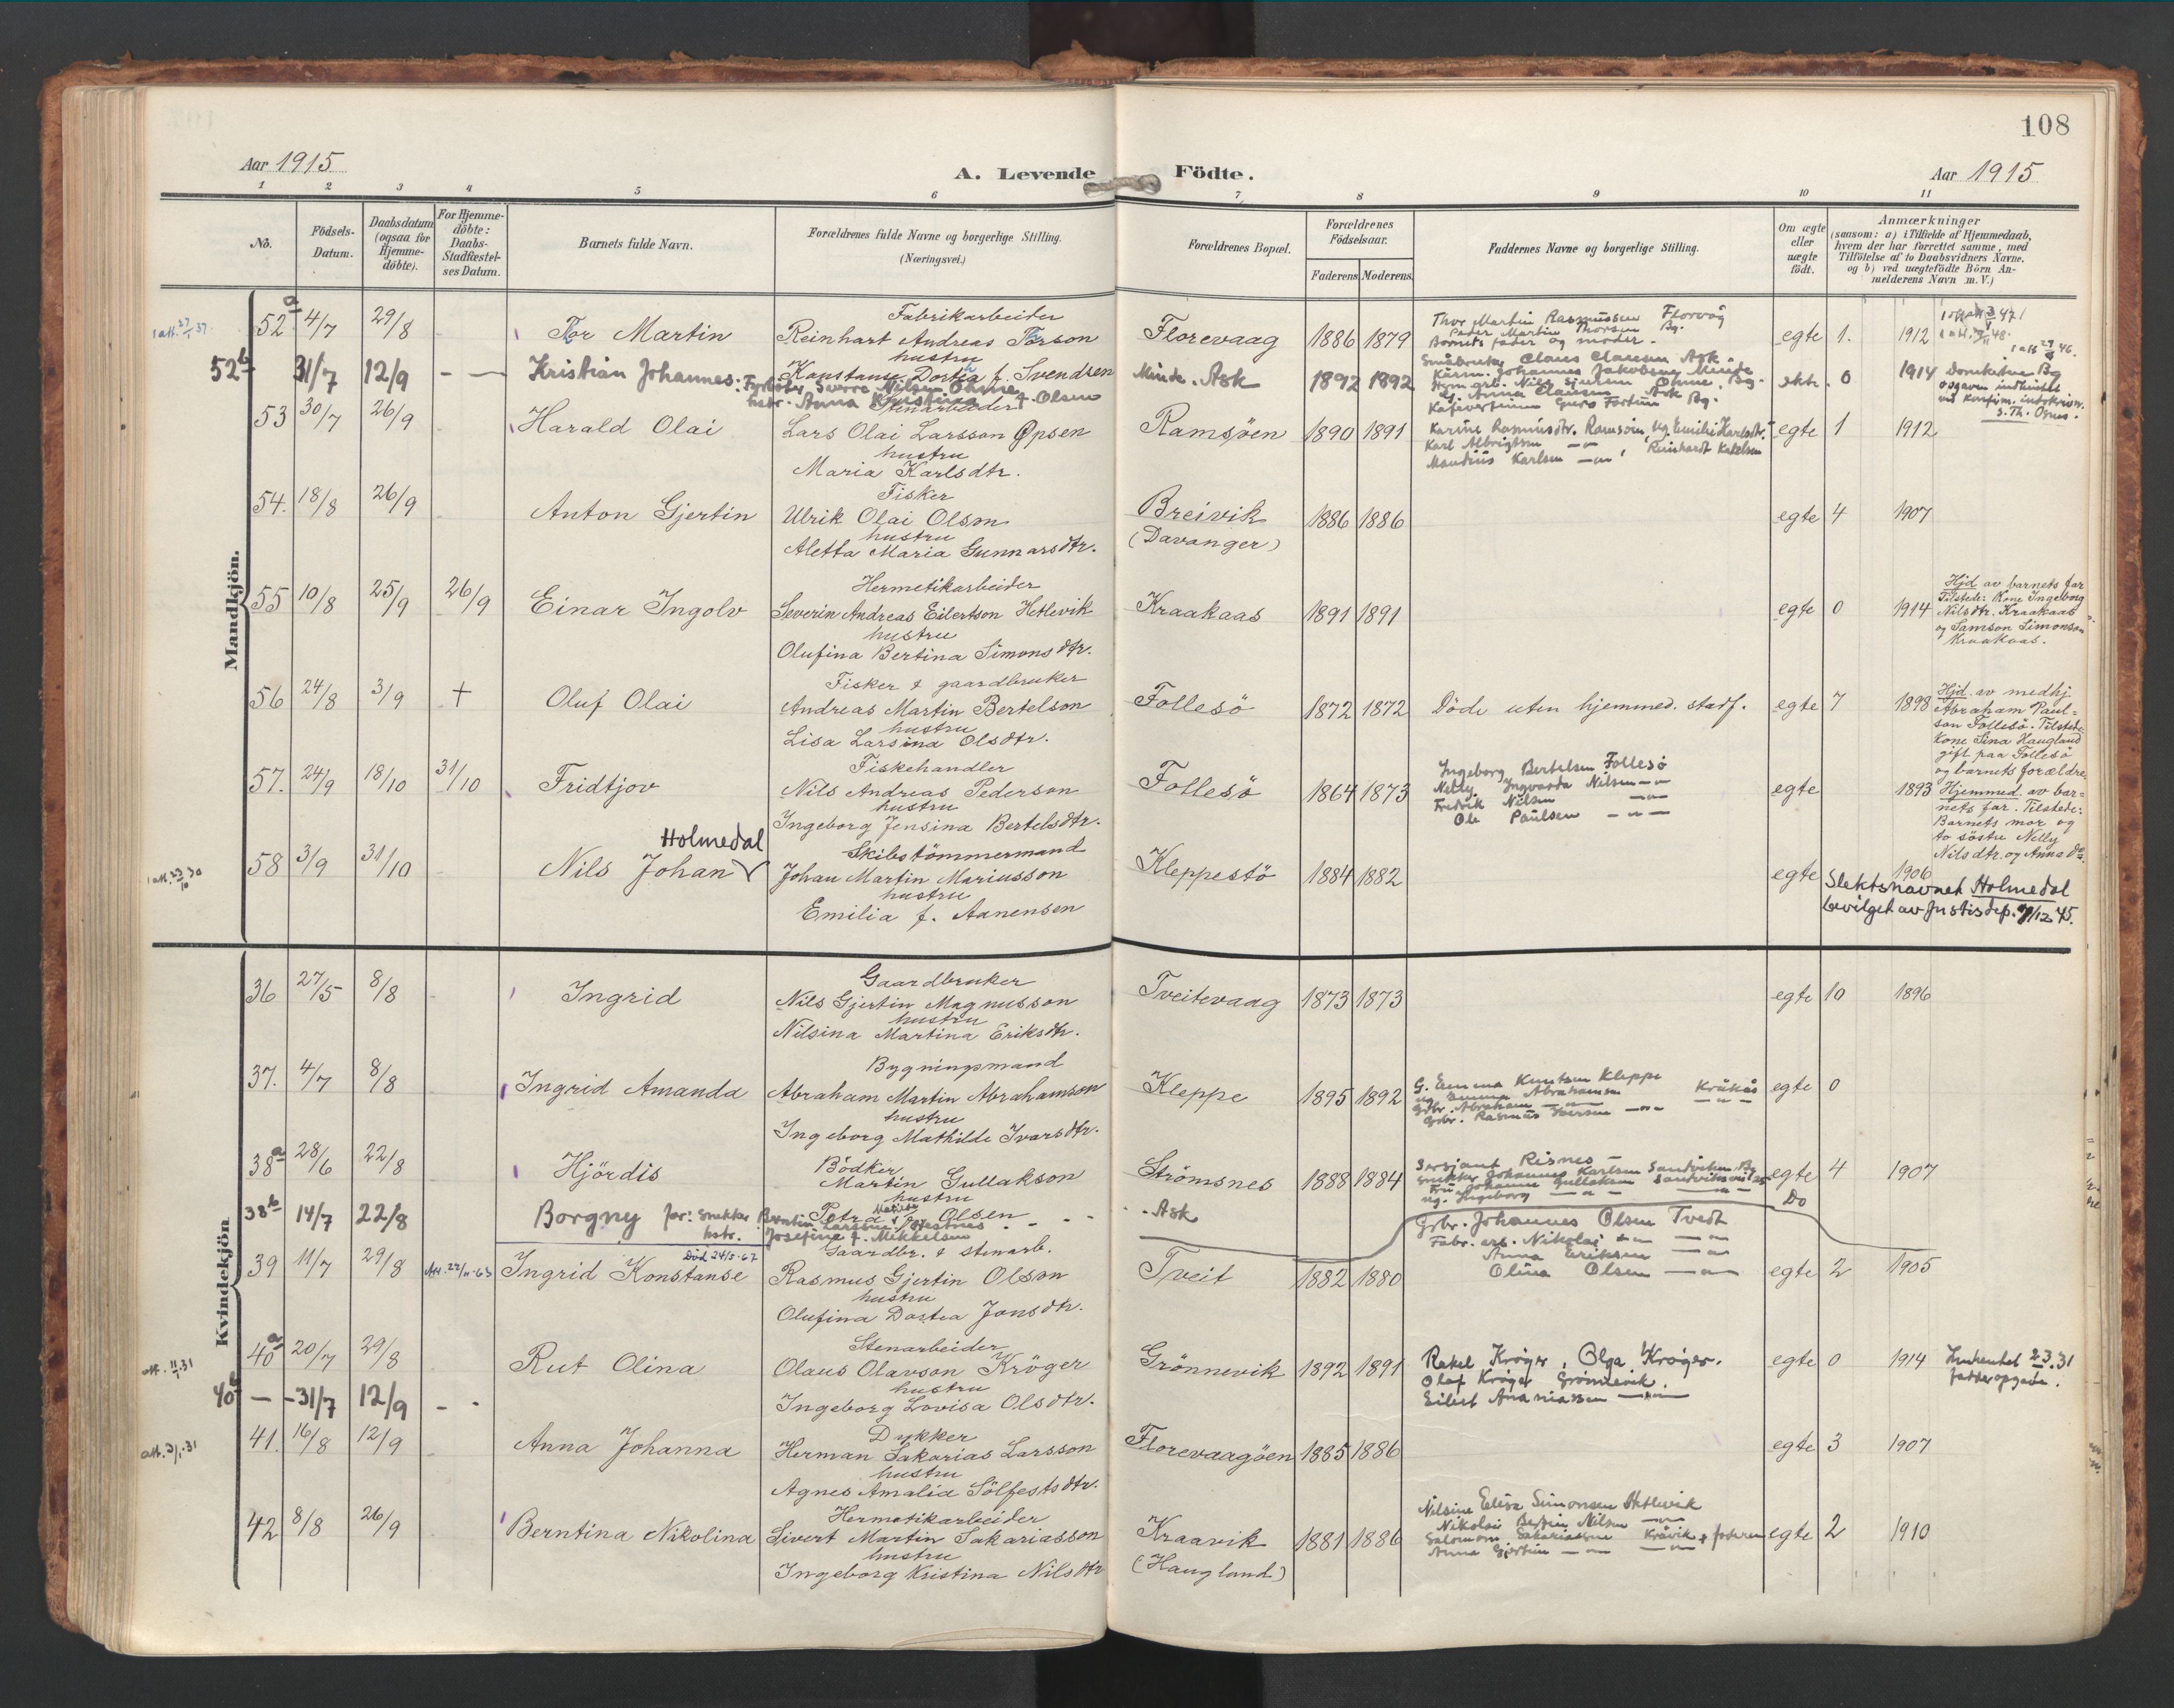 108
Aar 1915
A. Levende Födte.
Aar 1915
1 2 3 4 5 6 7 8 9 10 11
No.
Födsels-
Datum.
Daabsdatum
(ogsaa for
Hjemme-
döbte).
For Hjemme-
döbte:
Daabs-
Stadfæstel-
ses Datum.
Barnets fulde Navn.
Forældrenes fulde Navne og borgerlige Stilling.
(Næringsvei.)
Forældrenes Bopæl.
Forældrenes
Födselsaar.
Faderens Moderens
Faddernes Navne og borgerlige Stilling.
Om ægte
eller
uægte
födt.
Anmærkninger
(saasom: a) i Tilfælde af Hjemmedaab,
hvem der har forrettet samme, med
Tilföielse af to Daabsvidners Navne.
og b) ved uægtefödte Börn An-
melderens Navn m. V.)
Mandkjön.
52a 4/7 29/8 Tor Martin
Fabrikarbeider
Reinhart Andreas Torson
hustru
Konstanse Dortea f. Svendsen
Florevaag 1886 1879
Thor Martin Rasmussen Florvåg
Peder Martin Thorsen Bg.
Barnets fader og moder.
egte 1. 1912
52b 31/7 12/9 - — Kristian Johannes: Fyrbøter Sverre Nilsen Ohme
hstr. Anna Kristina f. Olsen
Minde. Ask 1892 1892
Småbruker Claus Clausen Ask.
Johannes Jakobsen Minde
ekte. 0 1914 Domkirken Bg
opgaven indhentet
ved konfirm. indskrivn.
53 30/7 26/9 Harald Olai
Stenarbeider
Lars Olai Larsson Øpsen
hustru
Maria Karlsdtr.
Ramsøen 1890 1891
Karine Rasmusdtr. Ramsøen, Ug. Emilie Karlsdtr.
Karl Albrigtsen —"— , Reinhardt Karlsen
Mandius Karlsen —"—
egte 1 1912
54. 18/8 26/9 Anton Gjertin
Fisker
Ulrik Olai Olson
hustru
Aletta Maria Gunnarsdtr.
Breivik
(Davanger)
1886 1886 egte 4 1907
55 10/8 25/9 26/9 Einar Ingolv
Hermetikarbeider
Severin Andreas Eilertson Hetlevik
hustru
Olufina Bertina Simonsdtr.
Kraakaas 1891 1891 egte 0 1914
Hjd av barnets far
Tilstede: Kone Ingeborg
Nilsdtr. Kraakaas
og Samson Simonson
Kraakaas.
56 24/8 3/9 + Oluf Olai
Fisker & gaardbruker
Andreas Martin Bertelson
hustru
Lisa Larsina Olsdtr.
Follesö 1872 1872 Döde uten hjemmed. stadf. egte 7 1898
Hjd av medhj.
Abraham Paul-
son Follesö. Tilstede
Kone Sina Haugland
gift paa Follesö
og barnets forældre.
57. 24/9 18/10 31/10 Fridtjov
Fiskehandler
Nils Andreas Pederson
hustru
Ingeborg Jensina Bertelsdtr.
Follesö 1864 1873
Ingeborg Bertelsen Follesø
Nelly Ingvarda Nilsen —"—
Fredrik Nilsen —"—
Ole Paulsen —"—
egte 1893
Hjemmed av bar-
nets far. Tilstede:
Barnets mor og
to söstre Nelly
Nilsdtr. og Anna do.
58 3/9 31/10 Nils Johan √ Holmedal
Skibstömmermand
Johan Martin Mariusson
hustru
Emilia f. Aanensen
Kleppestö 1884 1882 egte 1906
Slektsnavnet Holmedal
bevilget av Justisdep. 7/12 45.
Kvindekjön
36 27/5 8/8 Ingrid
Gaardbruker
Nils Gjertin Magnusson
hustru
Nilsina Martina Eriksdtr.
Tveitevaag 1873 1873 egte 10 1896
37. 4/7 8/8 Ingrid Amanda
Bygningsmand
Abraham Martin Abrahamson
hustru
Ingeborg Mathilde Ivarsdtr.
Kleppe 1895 1892
G. Emma Knutsen Kleppe
Ug. Emma Abrahamsen Kråkås
Grbr. Abraham —"— —"—
Grbr. Rasmus Iversen —"—
egte 0
38a 28/6 22/8 Hjördis
Bödker
Martin Gullakson
hustru
Petra f. Olsen
Strömsnes 1888 1884
Sersjant Risnes —
Snekker Johannes Karlsen Sandviken Bg
Fru Johanne Gullaksen
ug. Ingeborg —"—
egte 4 1907
38b 14/7 22/8 Borgny far: Snekker Berntin Larssen
hstr. Josefine f. Mikkelsen
- - Ask Do
39 11/7 29/8 Att. 22/11-63 Ingrid Konstanse
Död 24/5-67
Gaardbr. & stenarb.
Rasmus Gjertin Olson
hustru
Olufina Dortea Jonsdtr.
Tveit 1882 1880
Grbr. Johannes Olsen Tvedt
Fabr. arb. Nikolai —"— —"—
Anna Eriksen —"—
Olina Olsen —"—
egte 2 1905
att. 11/1 31
40a 20/7 29/8 Rut Olina
Stenarbeider
Olaus Olavson Kröger
hustru
Ingeborg Lovisa Olsdtr.
Grönnevik 1892 1891
Rakel Krøger, Olga Krøger.
Olaf Krøger Grønnevik.
Eilert Ananiassen —"—
egte 0 1914
Innhentet 2.3.31
fadderopgave.
40b — - 31/7 12/9 - -
41. 16/8 12/9 Anna Johanna
Dykker
Herman Sakarias Larsson
hustru
Agnes Amalia Sölfestsdtr.
Florevaagöen 1885 1886 egte 3 1907
42 8/8 26/9 Berntina Nikolina
Hermetikarbeider
Sivert Martin Sakariasson
hustru
Ingeborg Kristina Nilsdtr
Kraavik
(Haugland)
1881 1886
Nilsine Elise Simonsen Hetlevik
Nikolai Bertin Nilsen —"—
Salomon Sakariassen Kråvik + faderen
Anna Gjertine —"— —"—
egte 2 1910